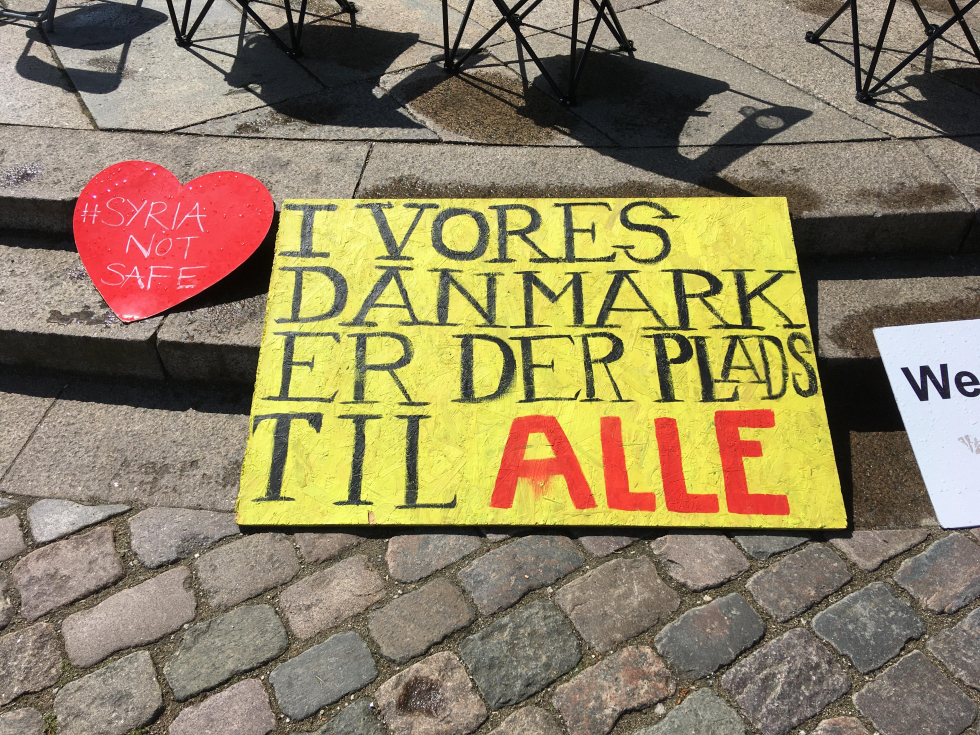 #SYRIA
NOT
SAFE
I VORES
DANMARK
ER DER PLADS
TIL ALLE
We